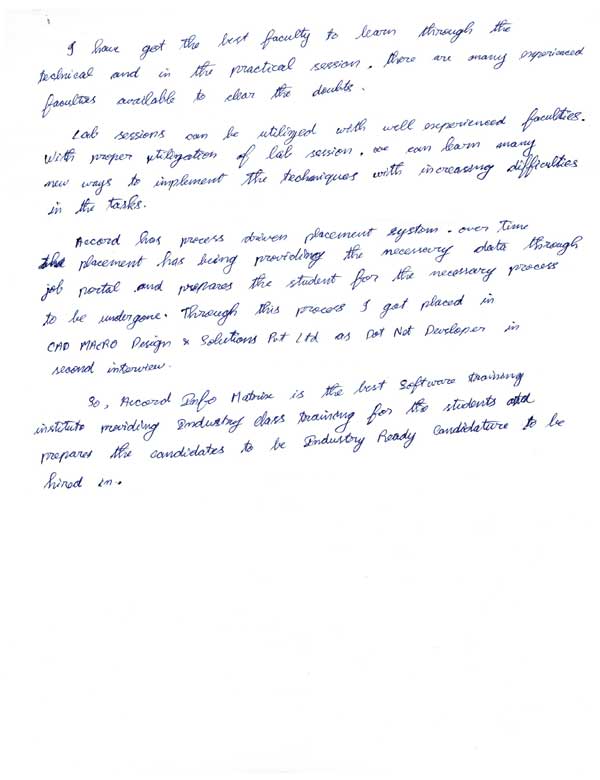 I have got the best faculty to learn through the
technical and in the practical session. there are many experienced
faculties available to clear the doubts.
Lab sessions can be utilized with well experienced faculties.
With proper utilization of lab session. we can learn many
new ways to implement the techniques with increasing difficulties
in the tasks.
Accord has process driven placement system. over time
the placement has being providing the necessary data through
job portal and prepares the student for the necessary process
to be undergone. Through this process I got placed in
CAD MACRO Design & Solutions Pvt Ltd as Dot Net Developer in
second interview.
So, Accord Info Matrix is the best Software training
institute providing Industry class training for the students and
prepares the candidates to be Industry Ready Candidature to be
hired in.